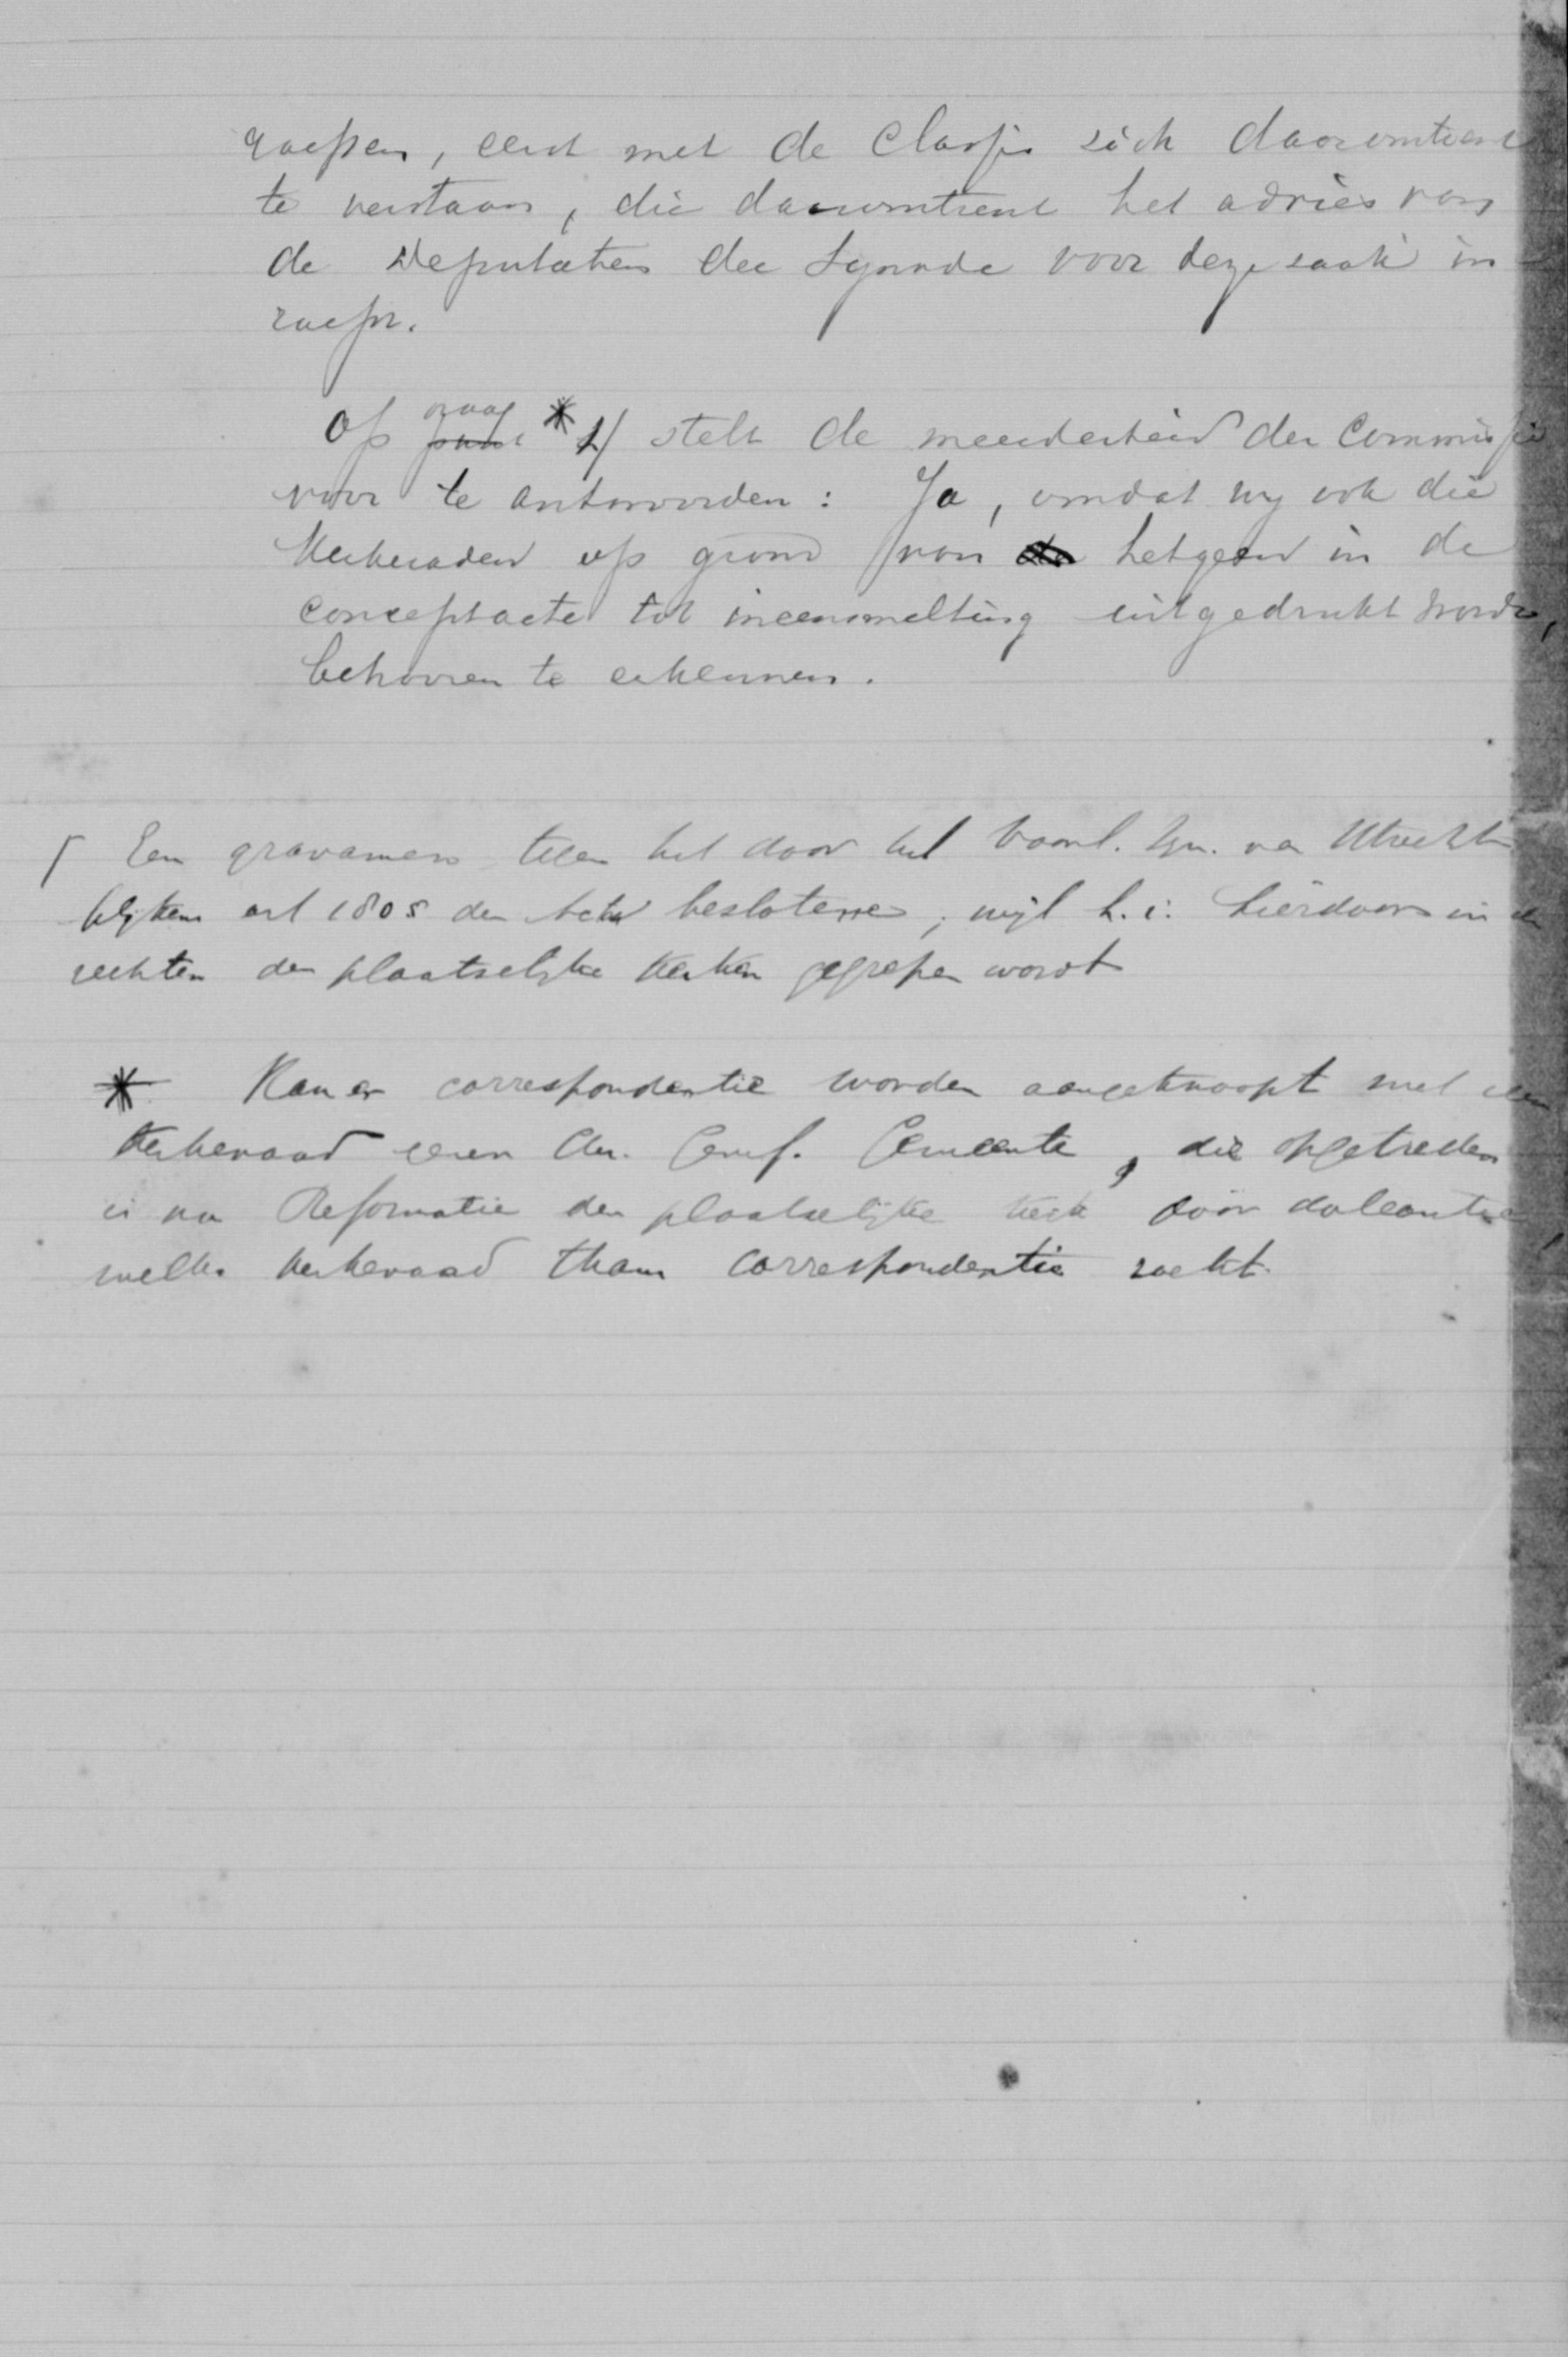 roepen, eerst met de Classis zich daaromtrent
te verstaan, die daaromtrent het advies van
de Deputaten der Synode voor deze zaak in
roepe.
Op vraag * 2/ stelt de meerderheid der Commissie
voor te antwoorden: Ja, omdat wy ook die
Kerkeraden op grond van hetgeen in de
conceptacte tot ineensmelting uitgedrukt wordt,
behooren te erkennen.
Een gravamen tegen het door het Voorl. Syn. van Utrecht
blijkens art 180 der Acta beslotene, wijl h.i. hierdoor in de
rechten der plaatselijke kerken gegrepen wordt
* Kan er correspondentie worden aangeknoopt met een
Kerkeraad eener Chr. Geref. Gemeente, die opgetreden
is na Reformatie der plaatselijke kerk door doleantie,
welke kerkeraad thans correspondentie zoekt.